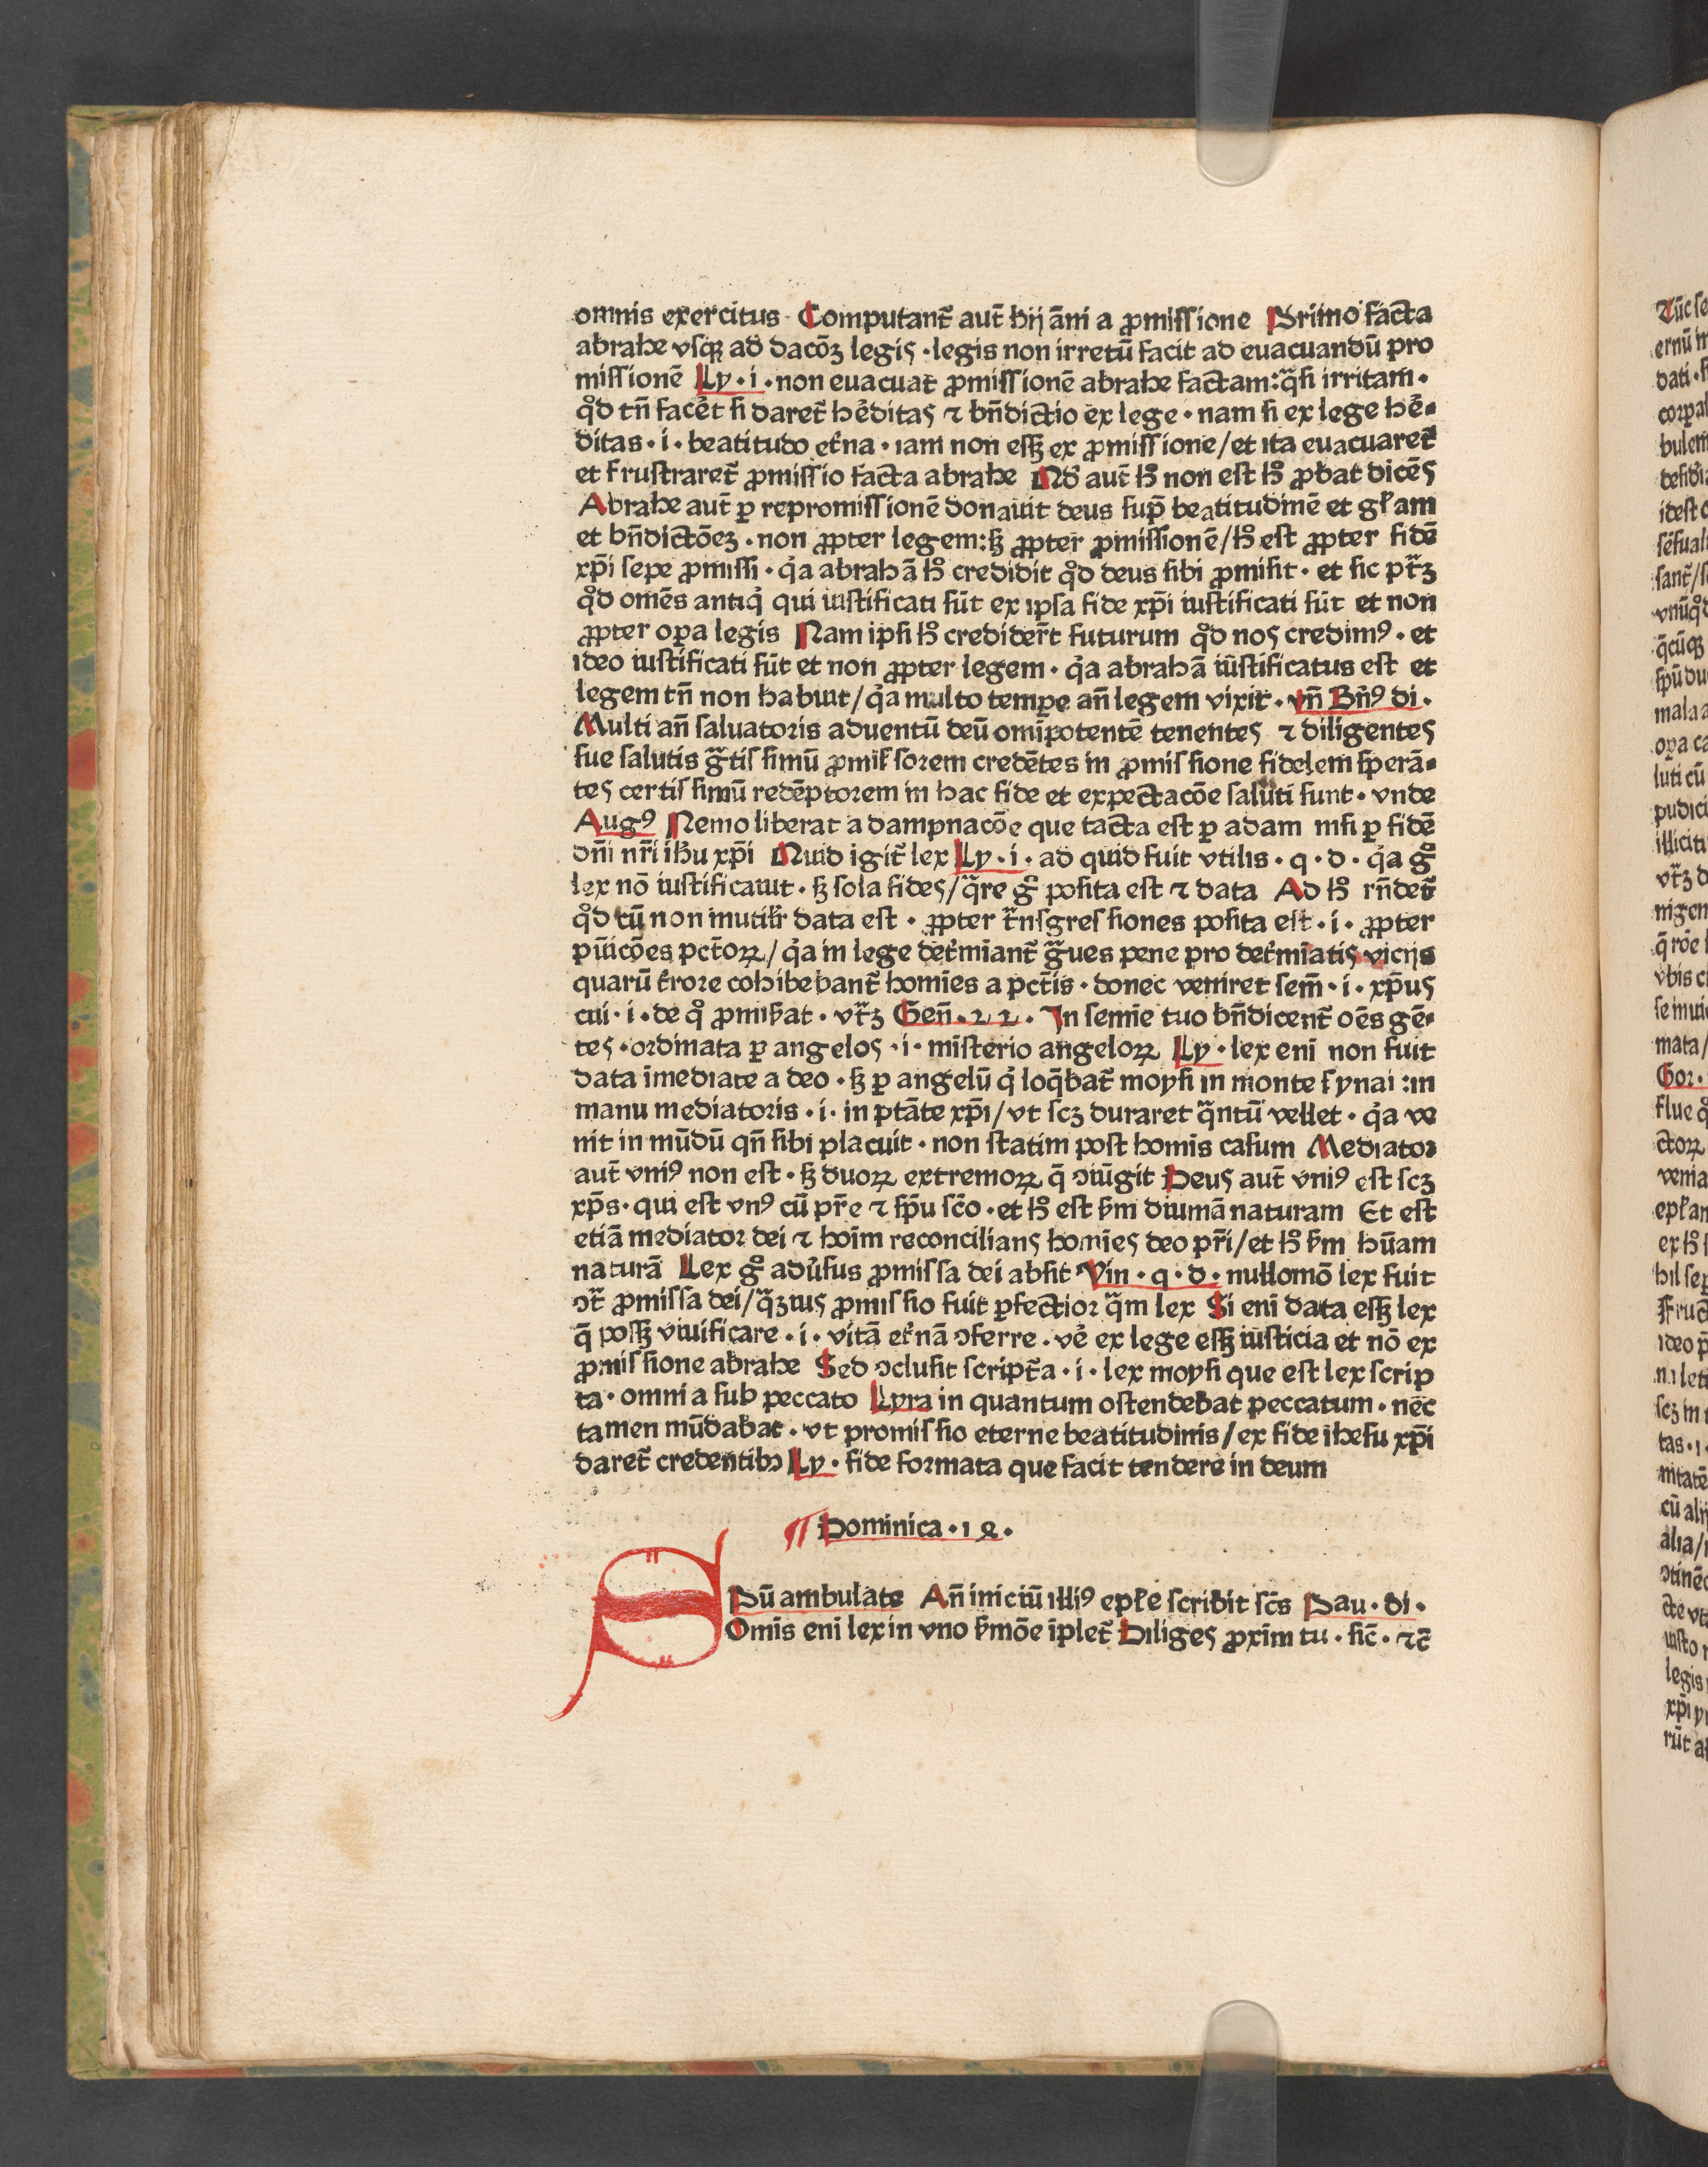 omnis exercitus · Computant̄ aut̄ hij āni a ꝓmissione Primo facta
abrahe vsqꝫ ad dacōꝫ legis · legis non irretū facit ad euacuandū pro
missionē Ly · i · non euacuat ꝓmissionē abrahe factam: q̄si irritam ·
qd̊ tn̄ facēt si daret̄ hēditas ⁊ bn̄dictio ex lege · nam si ex lege hē-
ditas · i · beatitudo et̄na · iam non essꝫ ex ꝓmissione/et ita euacuaret̄
et frustraret̄ ꝓmissio facta abrahe Qd̊ aut̄ hͦ non est hͦ ꝓbat dicēs
Abrahe aut̄ ꝑ repromissionē donauit deus sup̄ beatitudinē et gl̄am
et bn̄dictōeꝫ · non ꝓpter legem: sꝫ ꝓpter ꝓmissionē/hͦ est ꝓpter fidē
xp̄i sepe ꝓmissi · q̇a abrahā hͦ credidit qd̊ deus sibi ꝓmisit · et sic pt̄ꝫ
qd̊ omēs antiq̇ qui iustificati sūt ex ipsa fide xp̄i iustificati sūt et non
ꝓpter oꝑa legis Nam ipsi hͦ credider̄t futurum qd̊ nos credimꝰ · et
ideo iustificati sūt et non ꝓpter legem · q̇a abrahā iustificatus est et
legem tn̄ non habuit/q̇a multo temꝑe an̄ legem vixit · vn̄ Bn̄ꝰ di ·
Multi an̄ saluatoris aduentū deū omīpotentē tenentes ⁊ diligentes
sue salutis gͣtissimū ꝓmissorem credētes in ꝓmissione fidelem sperā-
tes certissimū redēptorem in hac fide et expectacōe saluti sunt · vnde
Augꝰ Nemo liberat a dampnacōe que facta est ꝑ adam nisi ꝑ fidē
dn̄i nr̄i ih̄u xp̄i Quid igit̄ lex Ly · i · ad quid fuit vtilis · q · d · q̇a gͦ
lex nō iustificauit · sꝫ sola fides/q̄re gͦ posita est ⁊ data Ad hͦ rn̄det̄
qd̊ cū non inutilr̄ data est · ꝓpter tͣnsgressiones posita est · i · ꝓpter
pūicōes pctōꝝ/q̇a in lege det̄miant̄ gͣues pene pro det̄mīatis vicijs
quarū t̄rore cohibebant̄ homīes a pctīs · donec veniret sem̄ · i · xp̄us
cui · i · de qͦ ꝓmis̄at · vt̄ꝫ Gen̄ · 22 · In semīe tuo bn̄dicent̄ oēs gē-
tes · ordinata ꝑ angelos · i · mīsterio angeloꝝ Ly · lex eni non fuit
data īmediate a deo · sꝫ ꝑ angelū q̇ loq̄bat̄ moysi in monte synai : in
manu mediatoris · i · in ptāte xp̄i/vt scꝫ duraret q̄ntū vellet · q̇a ve
nit in mūdū qn̄ sibi placuit · non statim post homīs casum Mediator
aut̄ vniꝰ non est · sꝫ duoꝝ extremoꝝ q̄ ↄiūgit Deus aut̄ vniꝰ est scꝫ
xp̄s · qui est vnꝰ cū pr̄e ⁊ sp̄u sc̄o · et hͦ est s̄m diuinā naturam Et est
etiā mediator dei ⁊ hoīm reconcilians homīes deo pr̄i/et hͦ s̄m hūam
naturā Lex gͦ adūsus ꝓmissa dei absit Vin · q · d · nullomō lex fuit
ↄt̄ ꝓmissa dei/q̄ꝫuis ꝓmissio fuit ꝑfectior q̄m lex Si eni data essꝫ lex
q̄ possꝫ viuificare · i · vitā et̄nā ↄferre · vē ex lege essꝫ iusticia et nō ex
ꝓmissione abrahe Sed ↄclusit script̄a · i · lex moysi que est lex scrip
ta · omnia sub peccato Lyra in quantum ostendebat peccatum · nec
tamen mūdabat · vt promissio eterne beatitudinis/ex fide ihesu xp̄i
daret̄ credentibꝫ Ly · fide formata que facit tendere in deum
¶ Dominica · 18 ·
S Pū ambulate An̄ iniciū illiꝰ epl̄e scribit sc̄s Pau · di ·
Omīs eni lex in vno s̄mōe īplet̄ Diliges ꝓxim tu · sic̄ · ⁊c̄